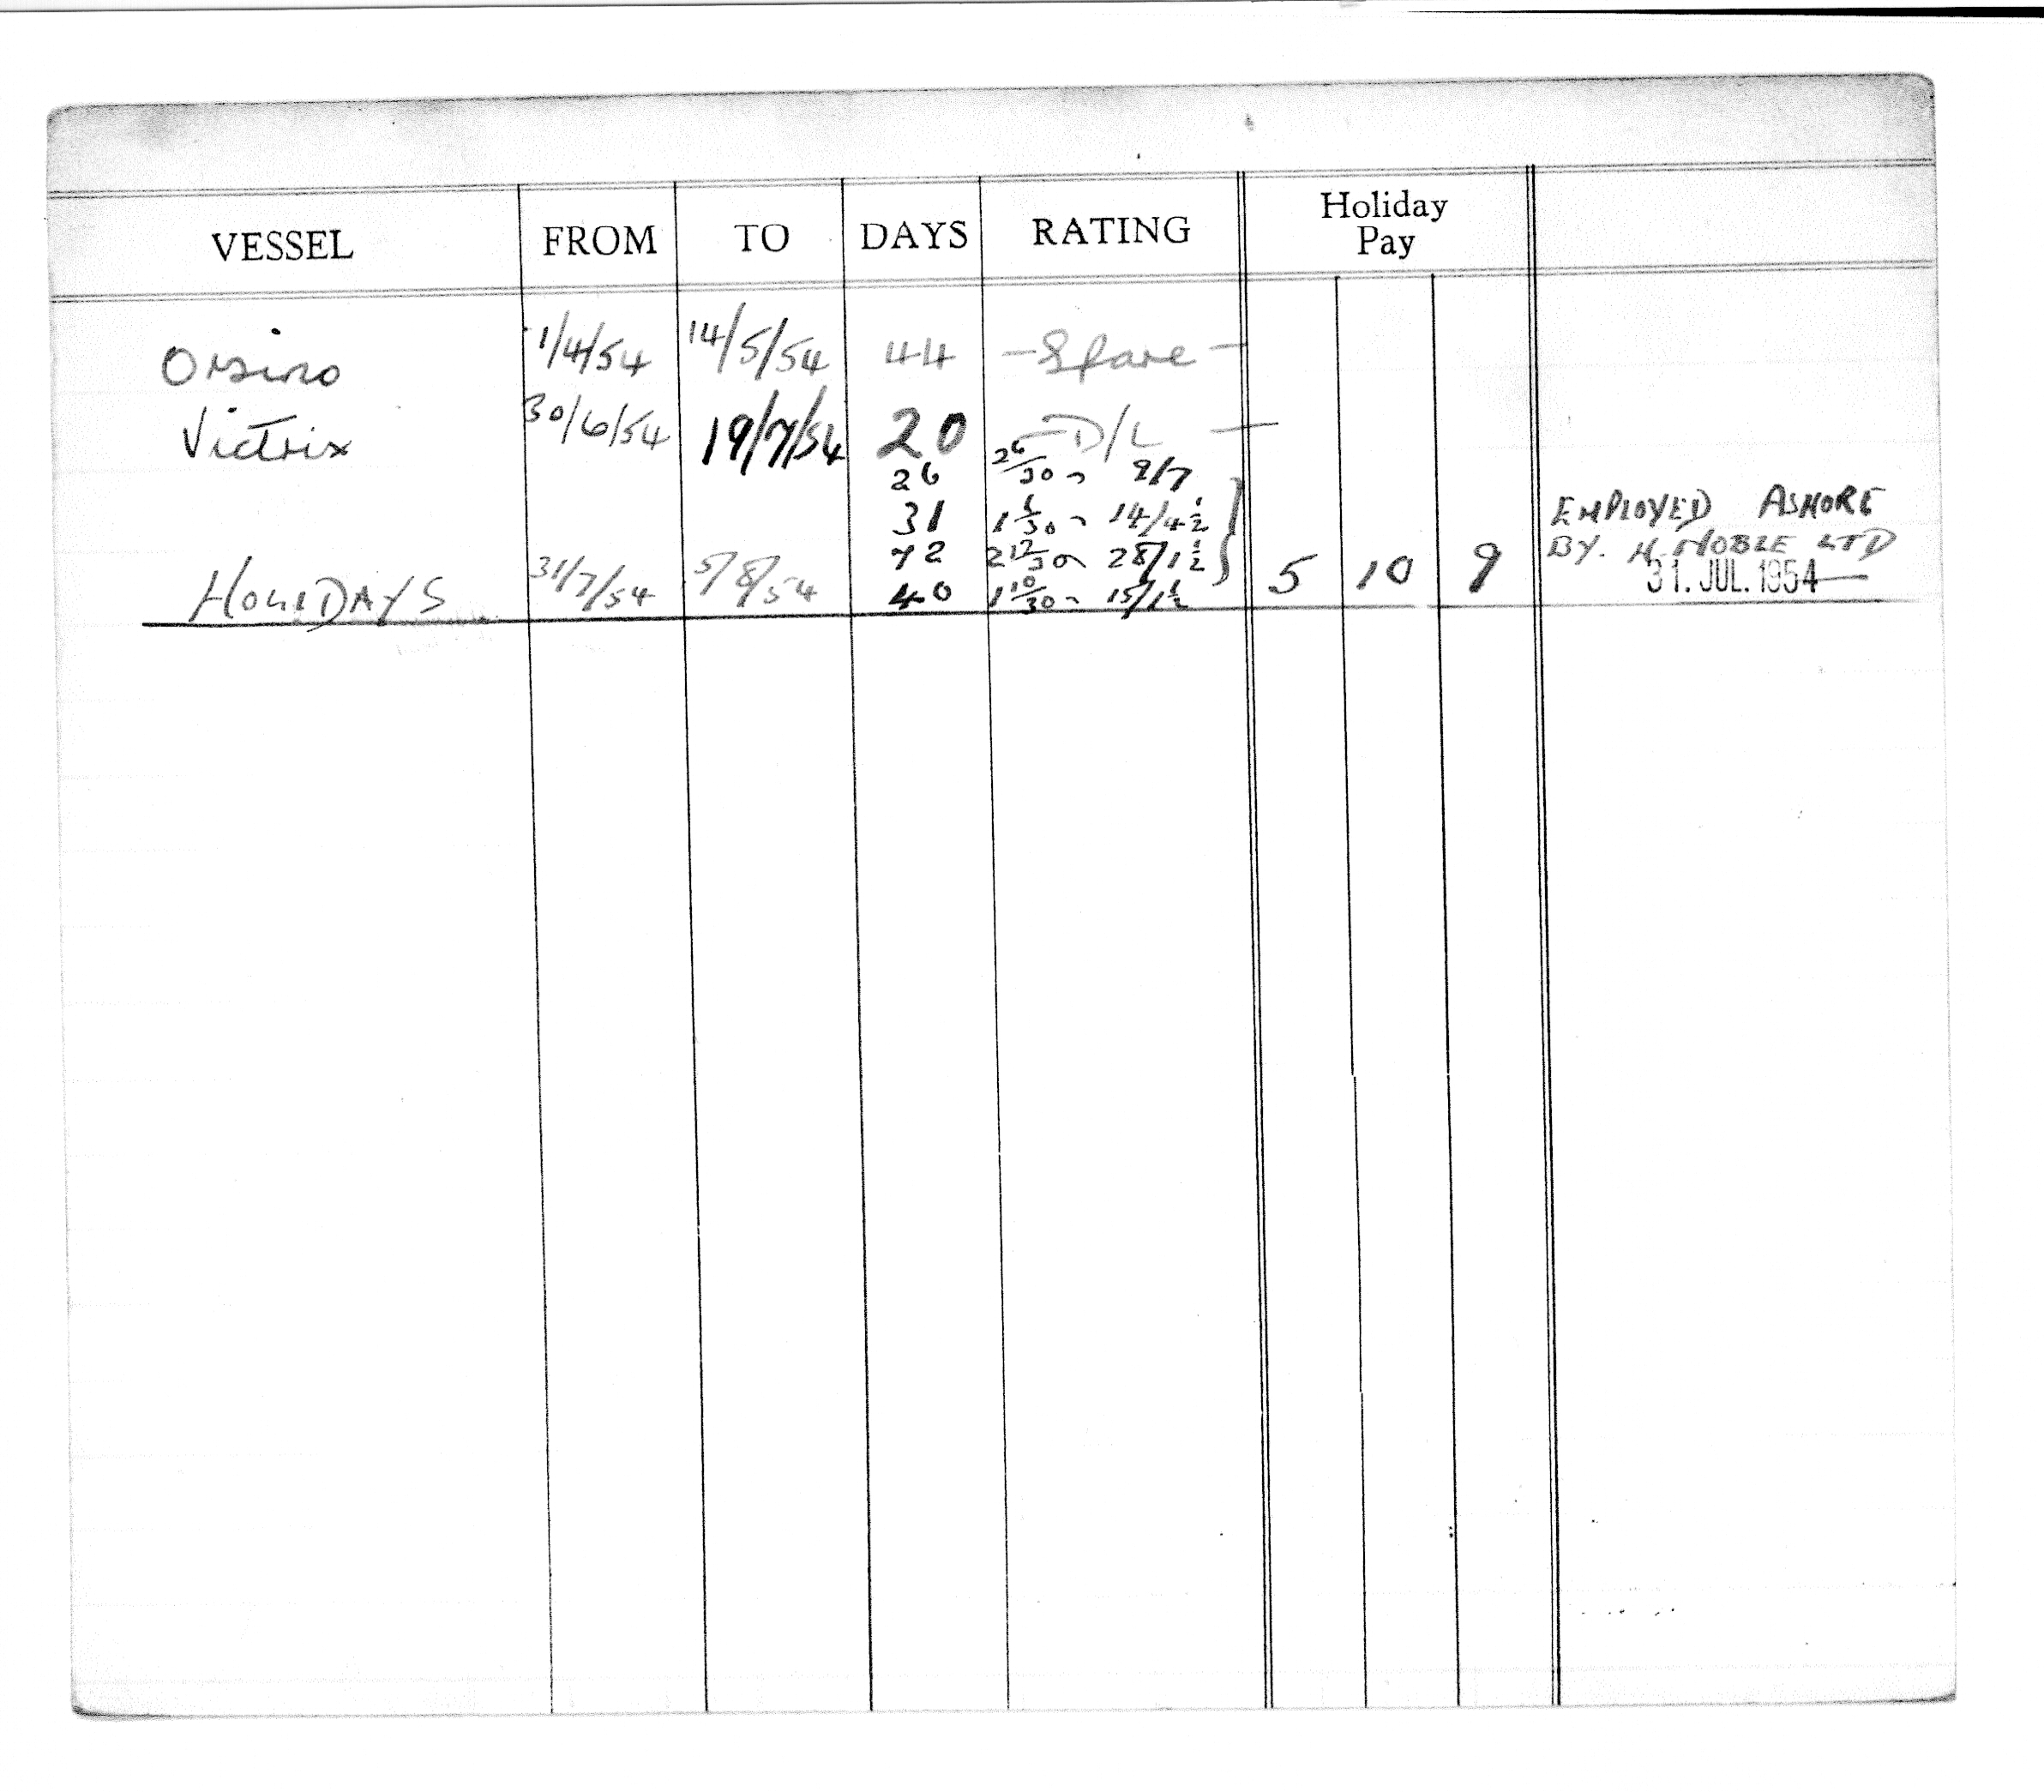 VESSEL FROM TO DAYS RATING Holiday Pay
Orsino 1/4/54 14/5/54 44 - Spare -
Victrix 30/6/54 19/7/54 20 - D/L -
26 26/30 9/7
31 1 1/30 14/4½
72 2 12/30 28/1½
HOLIDAYS 31/7/54 5/8/54 40 1 10/30 15/1½ 5 10 9
EMPLOYED ASHORE
BY. H. NOBLE LTD
31. JUL. 1954